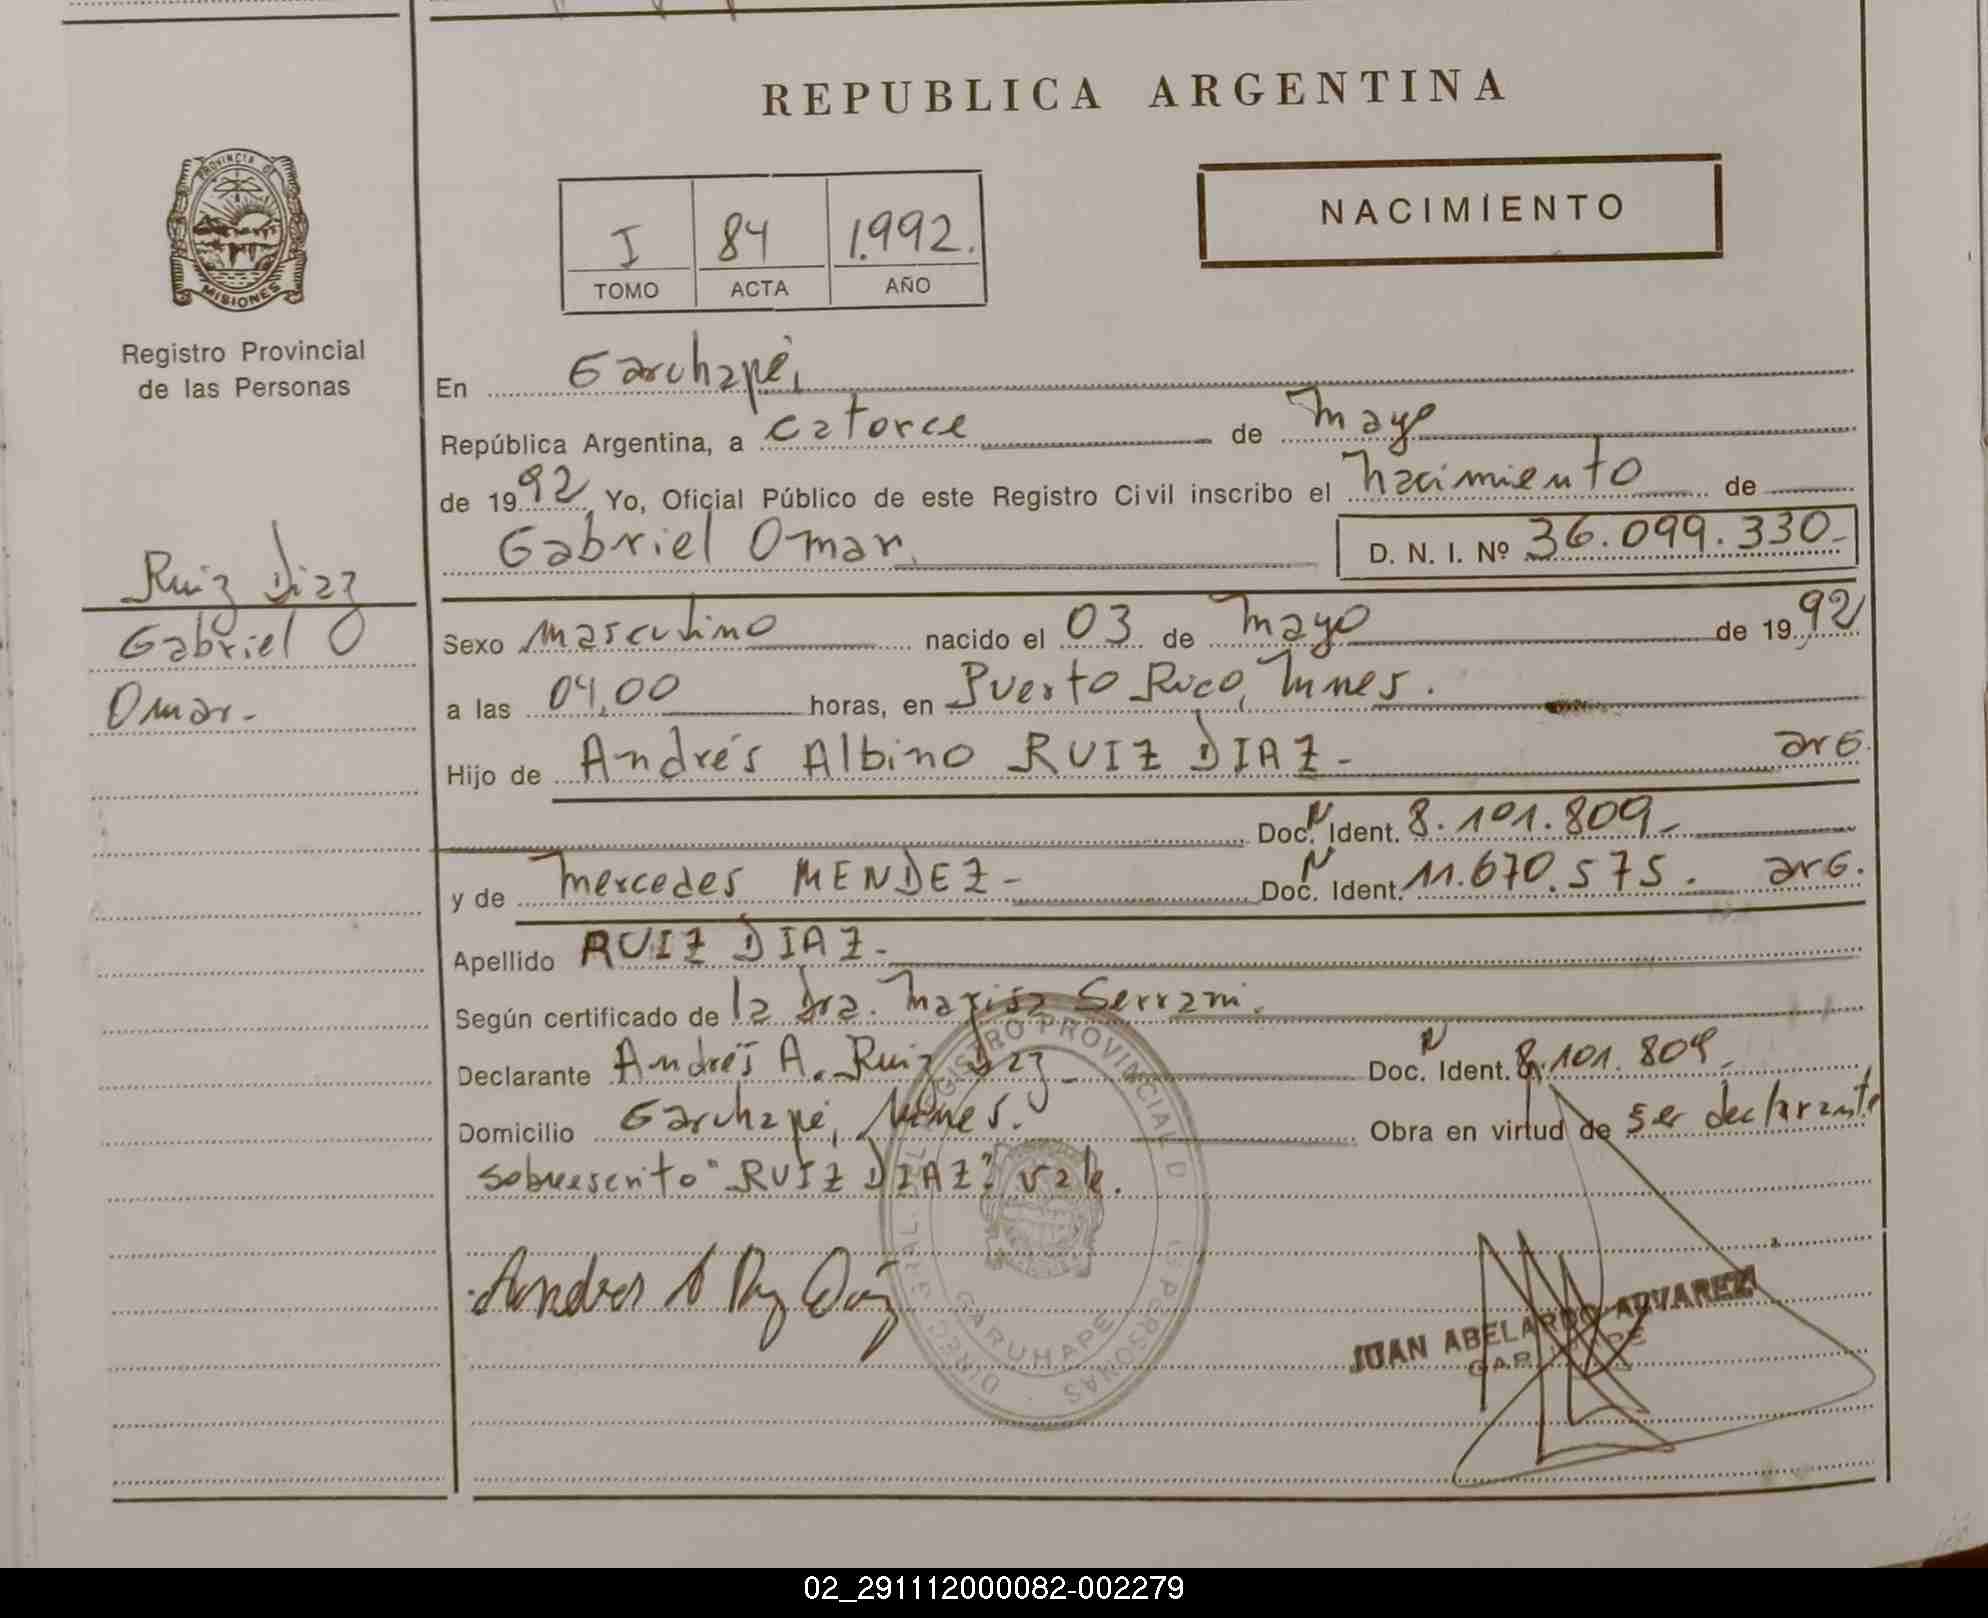 REPUBLICA ARGENTINA
PROVINCIA DE
MISIONES
Registro Provincial
de las Personas
NACIMIENTO
I 84 1.992.
TOMO ACTA AÑO
En Garuhapé,
República Argentina, a catorce de mayo
de 1992 Yo, Oficial Público de este Registro Civil inscribo el nacimiento de
Gabriel Omar. D. N. I. Nº 36.099.330-
Ruiz Diaz
Gabriel
Omar.-
Sexo masculino nacido el 03 de mayo de 1992
a las 04,00 horas, en Puerto Rico, Mnes.
Hijo de Andrés Albino RUIZ DIAZ- arG.
Doc. N Ident. 8.101.809-
y de Mercedes MENDEZ- Doc. N Ident. 11.670.575. arG.
Apellido RUIZ DIAZ-
Según certificado de la Dra. Marisa Serrani.
Declarante Andrés A. Ruiz Diaz- Doc. N Ident. 8.101.809-
Domicilio Garuhapé, Mnes. Obra en virtud de ser declarante
sobreescrito "RUIZ DIAZ": vale.
Andres A Ruiz Diaz
REGISTRO PROVINCIAL D PERSONAS
GARUHAPE
JUAN ABELARDO ALVAREZ
02_291112000082-002279